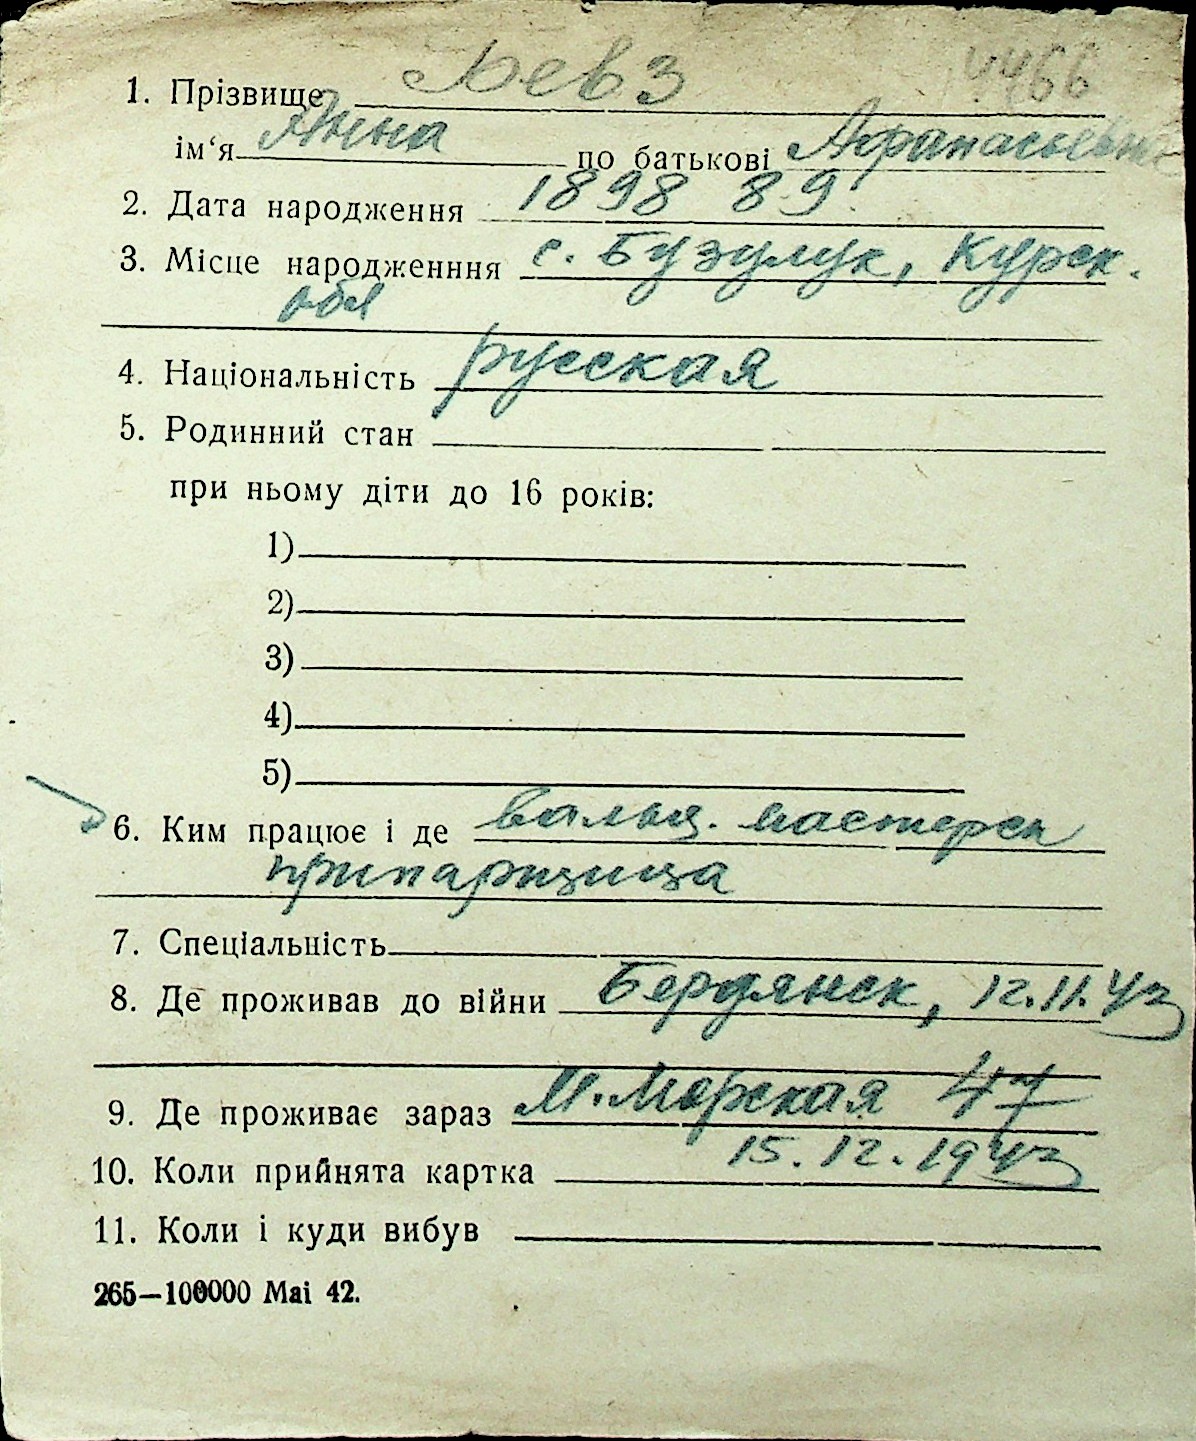 4466
1. Прізвище Бевз
ім'я Анна по батькові Афанасьевна
2. Дата народження 1898 8 9.
3. Місце народженння с. Бузулук, Курск.
обл
4. Національність русская
5. Родинний стан
при ньому діти до 16 років:
1)
2)
3)
4)
5)
6. Ким працює і де вальц. мастерск
7. Спеціальність
8. Де проживав до війни Бердянск, 12.11.43
9. Де проживає зараз М. Морская 47
10. Коли прийнята картка 15.12.1943
11. Коли і куди вибув
265—100000 Mai 42.